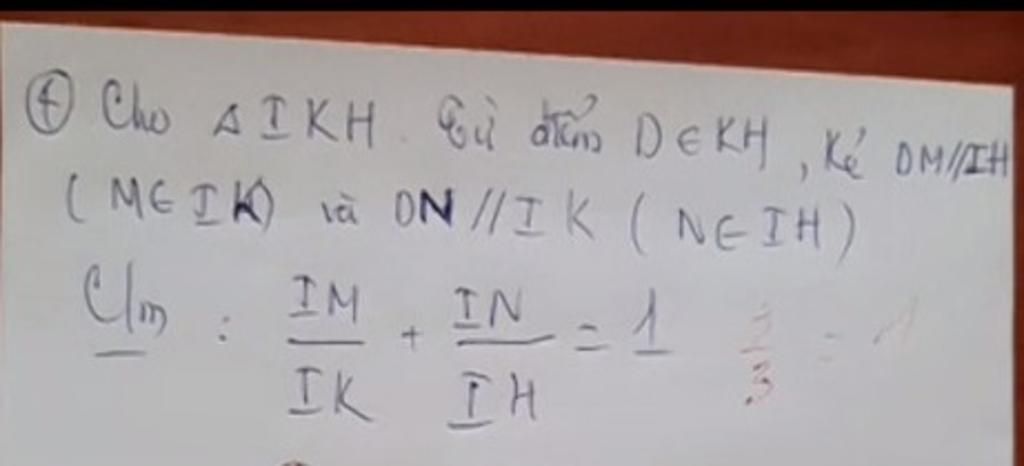 ④ Cho Δ IKH. Từ điểm D ∈ KH, kẻ DM//IH
(M ∈ IK) và DN // IK ( N ∈ IH )
Cm : IM/IK + IN/IH = 1